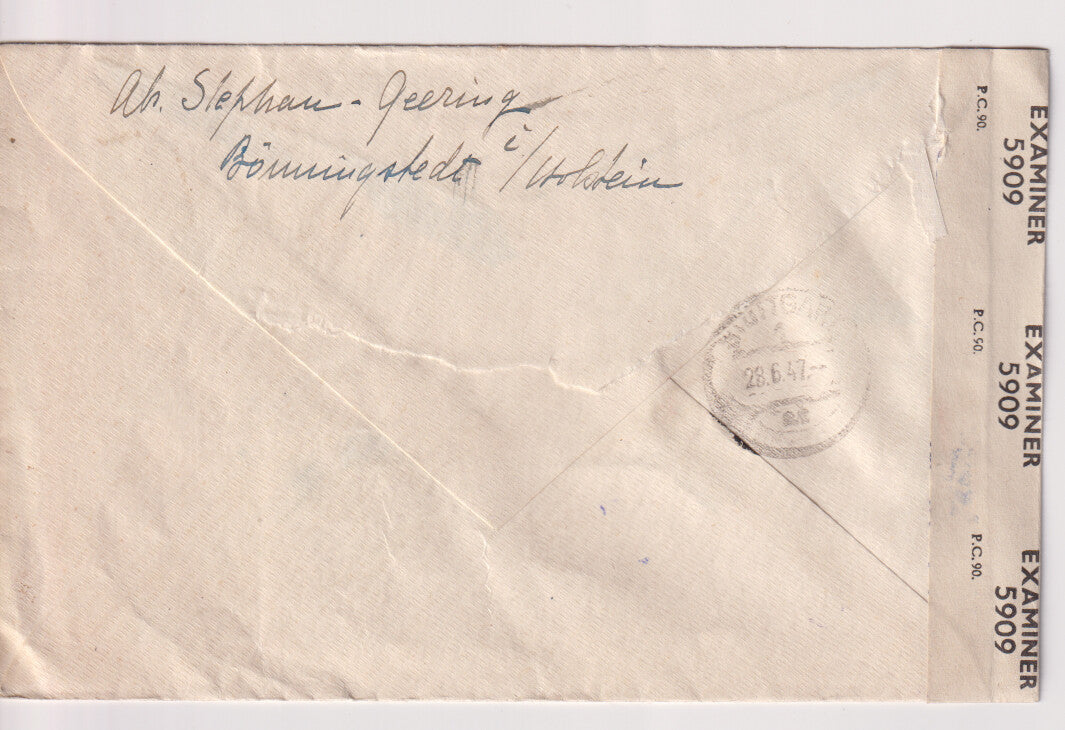 Ab. Stephan - Geering
Bönningstedt i/Holstein
STUTTGART
28.6.47.--
P.C. 90.
EXAMINER
5909
P.C. 90.
EXAMINER
5909
P.C. 90.
EXAMINER
5909